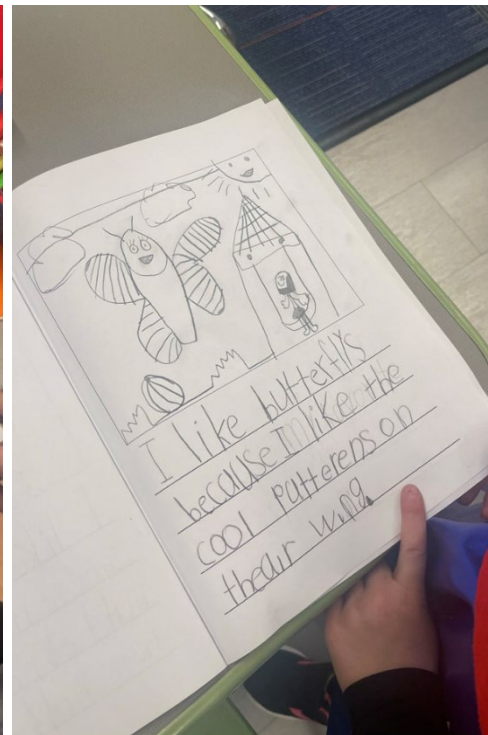 I like butterflys
because I like the
cool patterens on
theair wing.